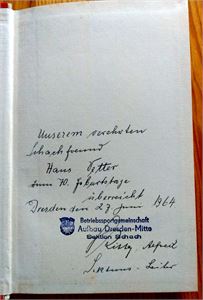 Unserem verehrten
Schachfreund
Hans Vetter
zum 70. Geburtstage
überreicht
Dresden den 27 Juni 1964
Betriebssportgemeinschaft
Aufbau Dresden-Mitte
Sektion Schach
Alfred
Sektions-Leiter